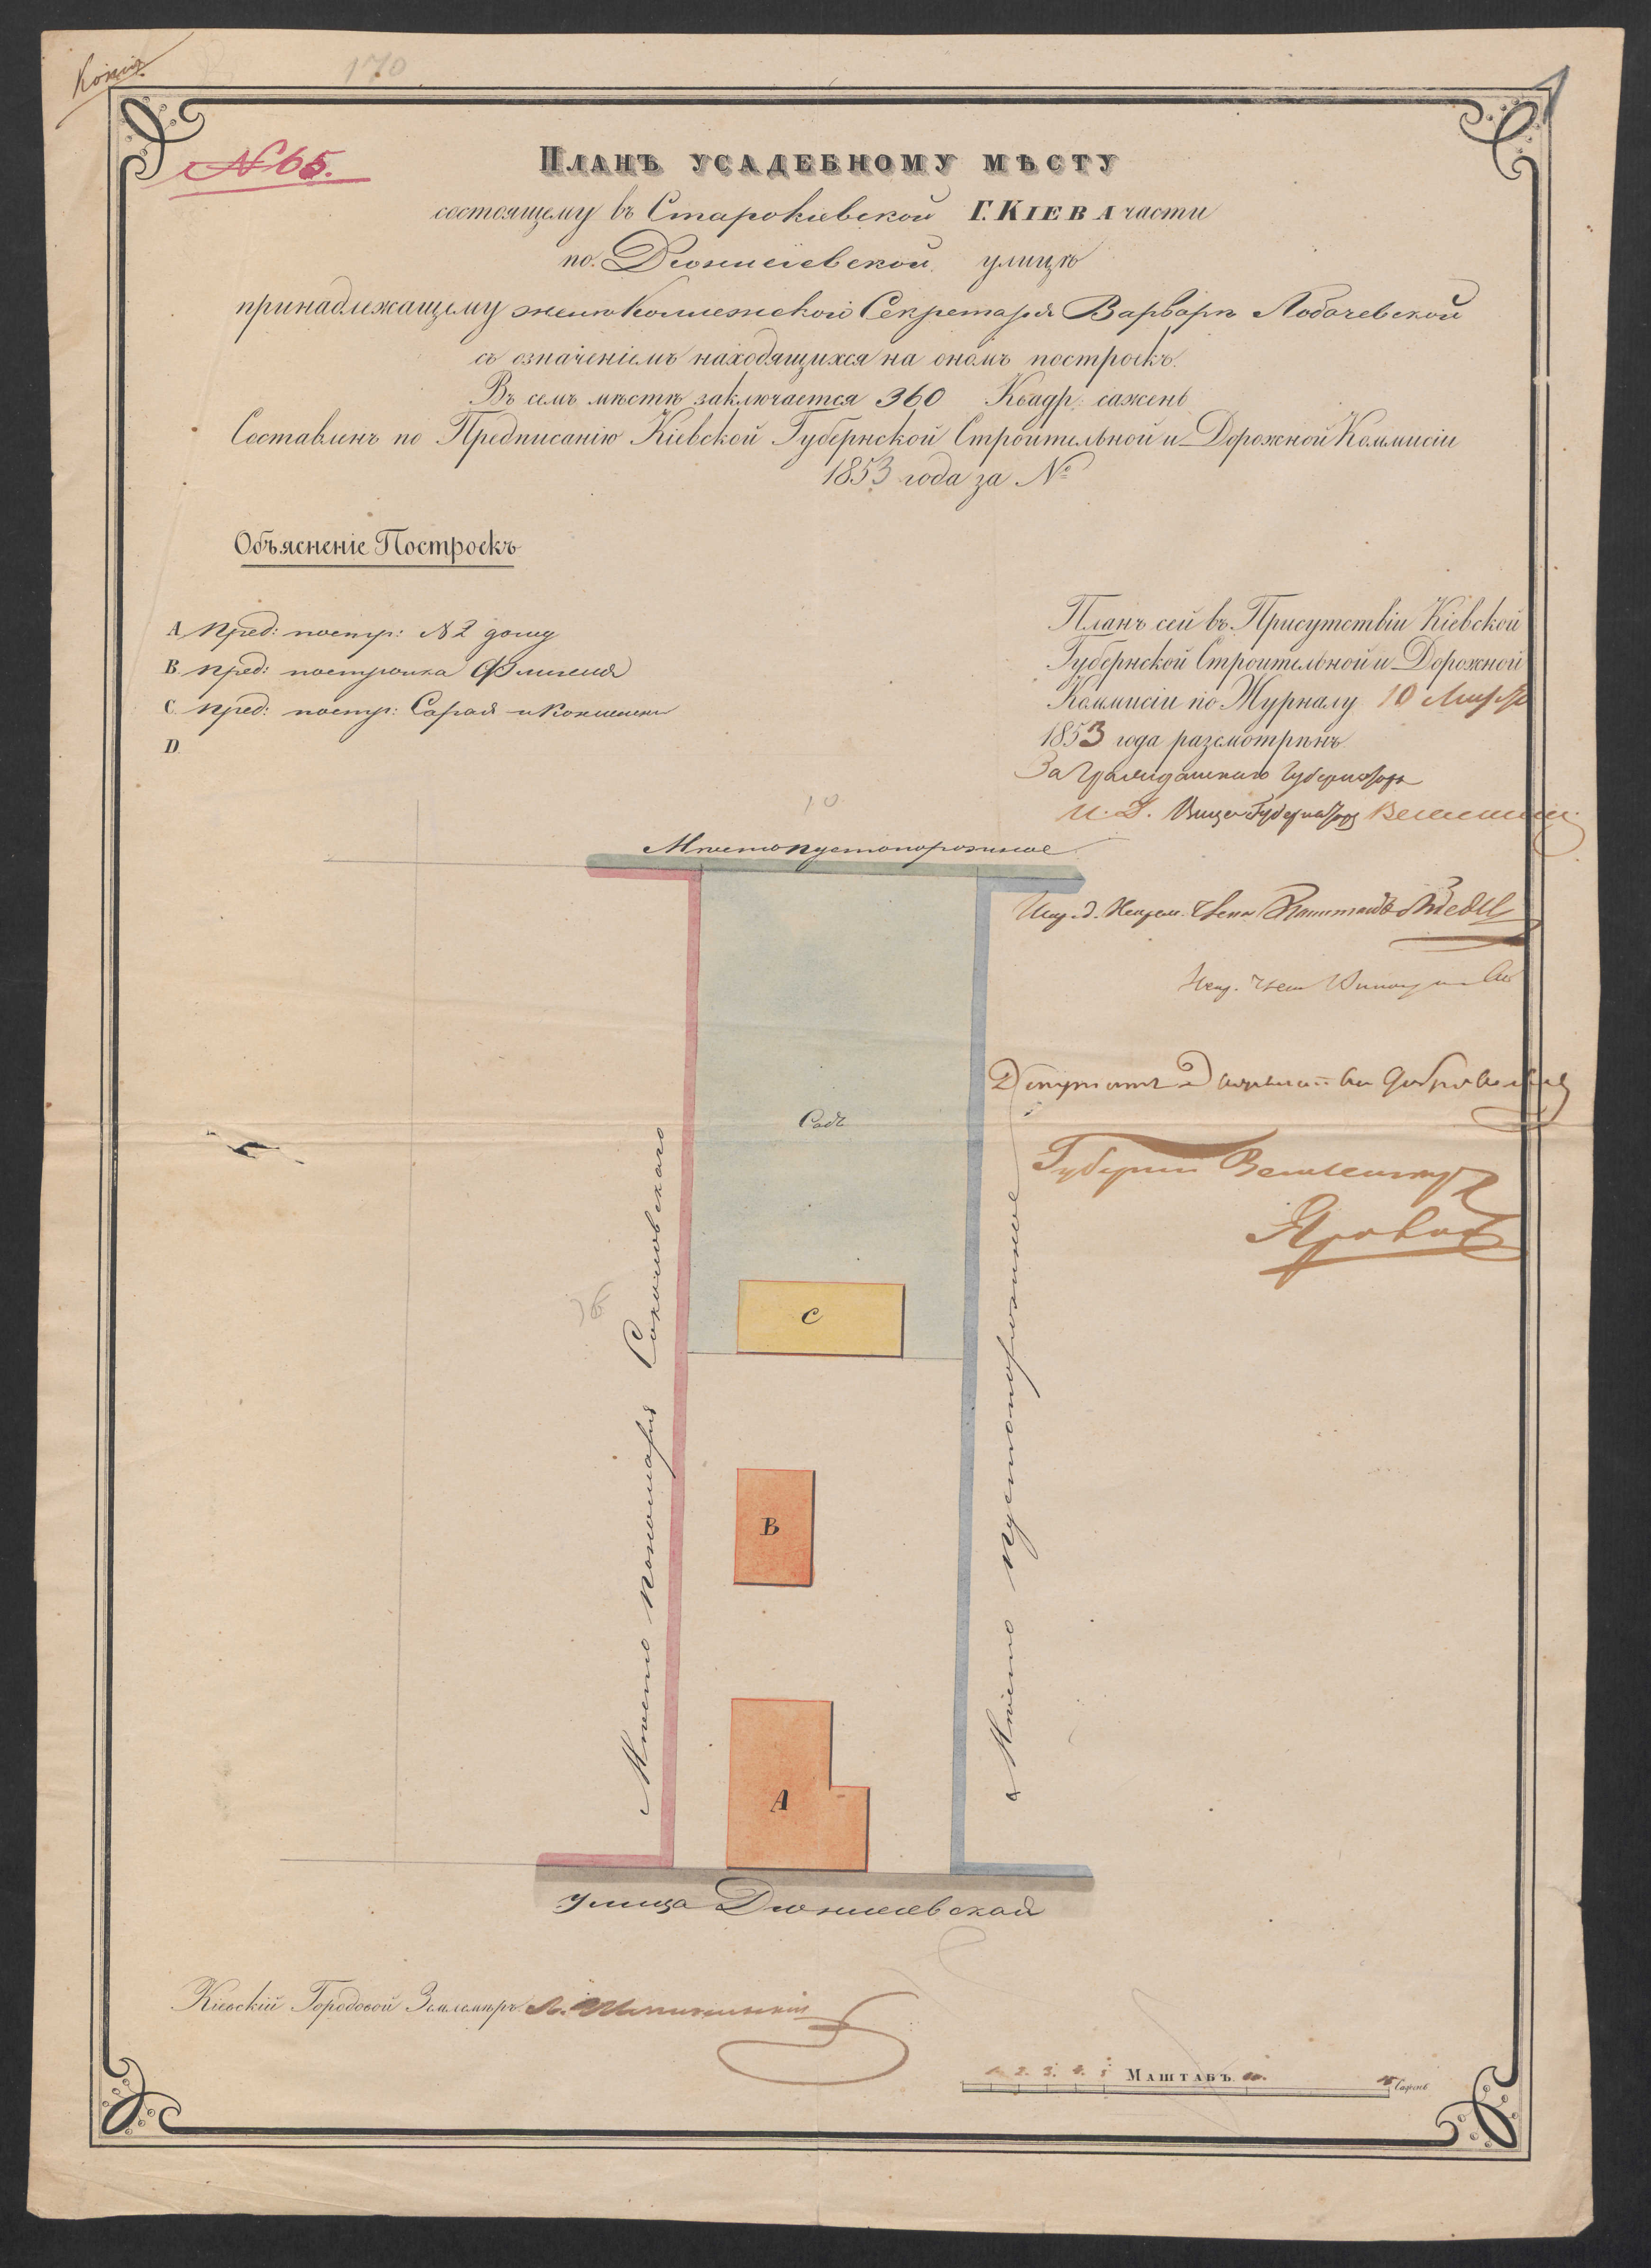 Копія
170
№ 65.
Планъ усадебному мѣсту
состоящему въ Старокіевской Г. Кіева части
по Діонисіевской улицѣ
принадлежащему женѣ Коллежскаго Секретаря Варварѣ Лобачевской
съ означеніемъ находящихся на ономъ построекъ.
Въ семъ мѣстѣ заключается 360 Квадр: сажень
Составленъ по Предписанію Кіевской Губернской Строительной и Дорожной Коммисіи
1853 года за №
Объясненіе Построекъ
A. пред: постр: №2 дому
B. пред: постройка Флигеля
C. пред: постр: Сарая и Конюшни
D.
Планъ сей въ Присутствіи Кіевской
Губернской Строительной и Дорожной
Коммисіи по Журналу 10 Марта
1853 года разсмотрѣнъ
За Гражданскаго Губернатора
И. Д. Вице Губернаторъ
Депутатъ
Губернскій
10
Мѣсто пустопорожнее
Садъ
C
B
A
36
Мѣсто пономаря Соколовскаго
Мѣсто пустопорожнее
улица Діонисіевская
Кіевскій Городовой Землемѣръ
1. 2. 3. 4. 5 Маштабъ 10. 15 Сажень